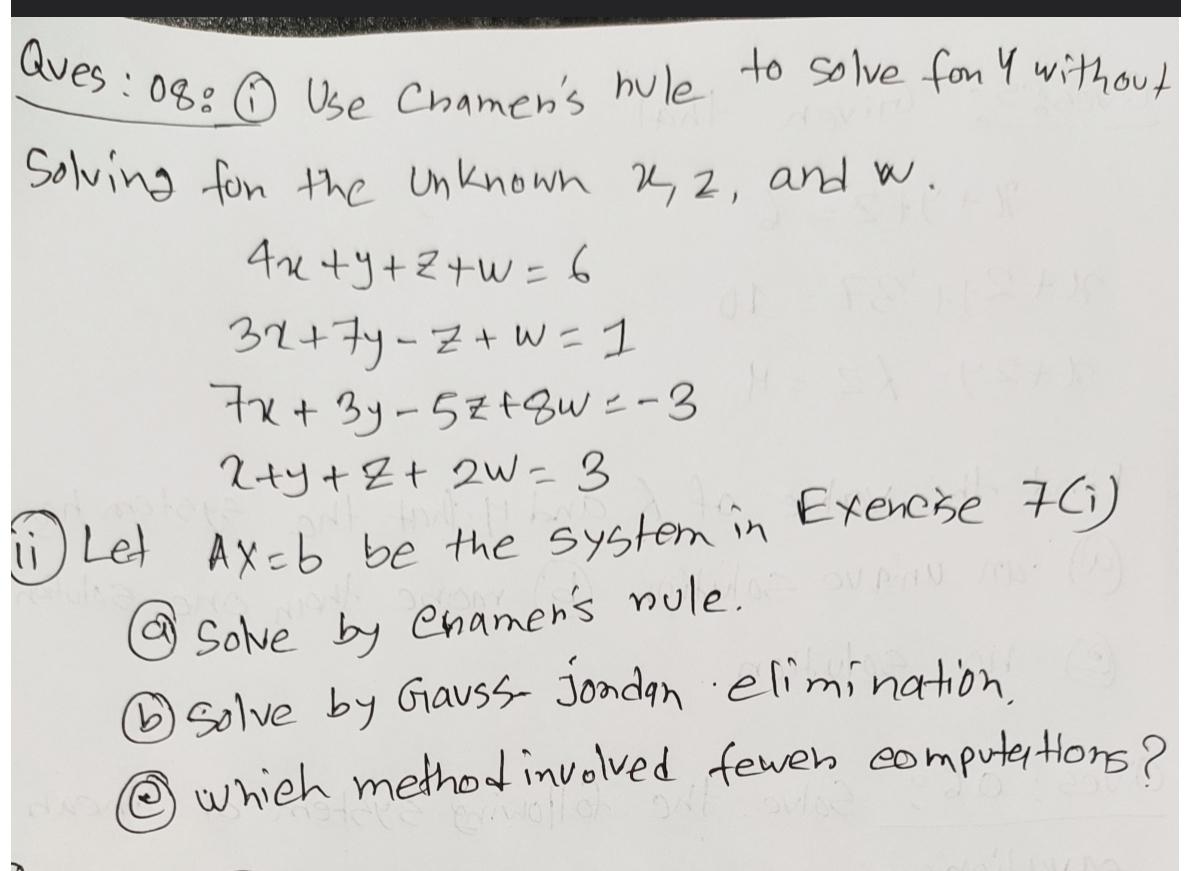 Ques: 08: (i) Use Cramer's rule to solve for y without
Solving for the unknown x, z, and w.
4x + y + z + w = 6
3x + 7y - z + w = 1
7x + 3y - 5z + 8w = -3
x + y + z + 2w = 3
(ii) Let AX = b be the system in Exercise 7(i)
(a) Solve by Cramer's rule.
(b) Solve by Gauss- jordan elimination.
(c) which method involved fewer computations?